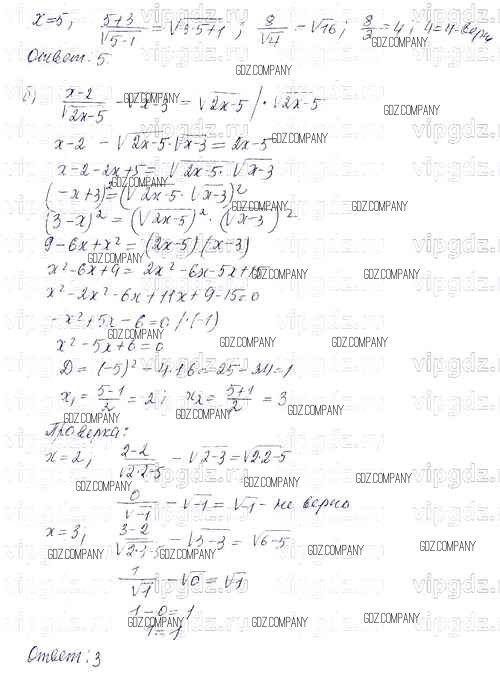 x=5, (5+3)/√(5-1) = √(3·5+1); 8/√4 = √16; 8/2 = 4; 4=4-верно
Ответ: 5.
б) (x-2)/√(2x-5) - √(x-3) = √(2x-5) /·√(2x-5)
x-2 - √(2x-5)·√(x-3) = 2x-5
x-2-2x+5 = √(2x-5)·√(x-3)
(-x+3)² = (√(2x-5)·√(x-3))²
(3-x)² = (√(2x-5))²·(√(x-3))²
9-6x+x² = (2x-5)(x-3)
x²-6x+9 = 2x²-6x-5x+15
x²-2x²-6x+11x+9-15=0
-x²+5x-6=0 /·(-1)
x²-5x+6=0
D = (-5)²-4·1·6=25-24=1
x₁ = (5-1)/2 = 2; x₂ = (5+1)/2 = 3
Проверка:
x=2, (2-2)/√(2·2-5) - √(2-3) = √(2·2-5)
0/√-1 - √-1 = √-1 - не верно
x=3, (3-2)/√(2·3-5) - √(3-3) = √(6-5)
1/√1 - √0 = √1
1-0=1
1=1
Ответ: 3
GDZ.COMPANY
vipgdz.ru